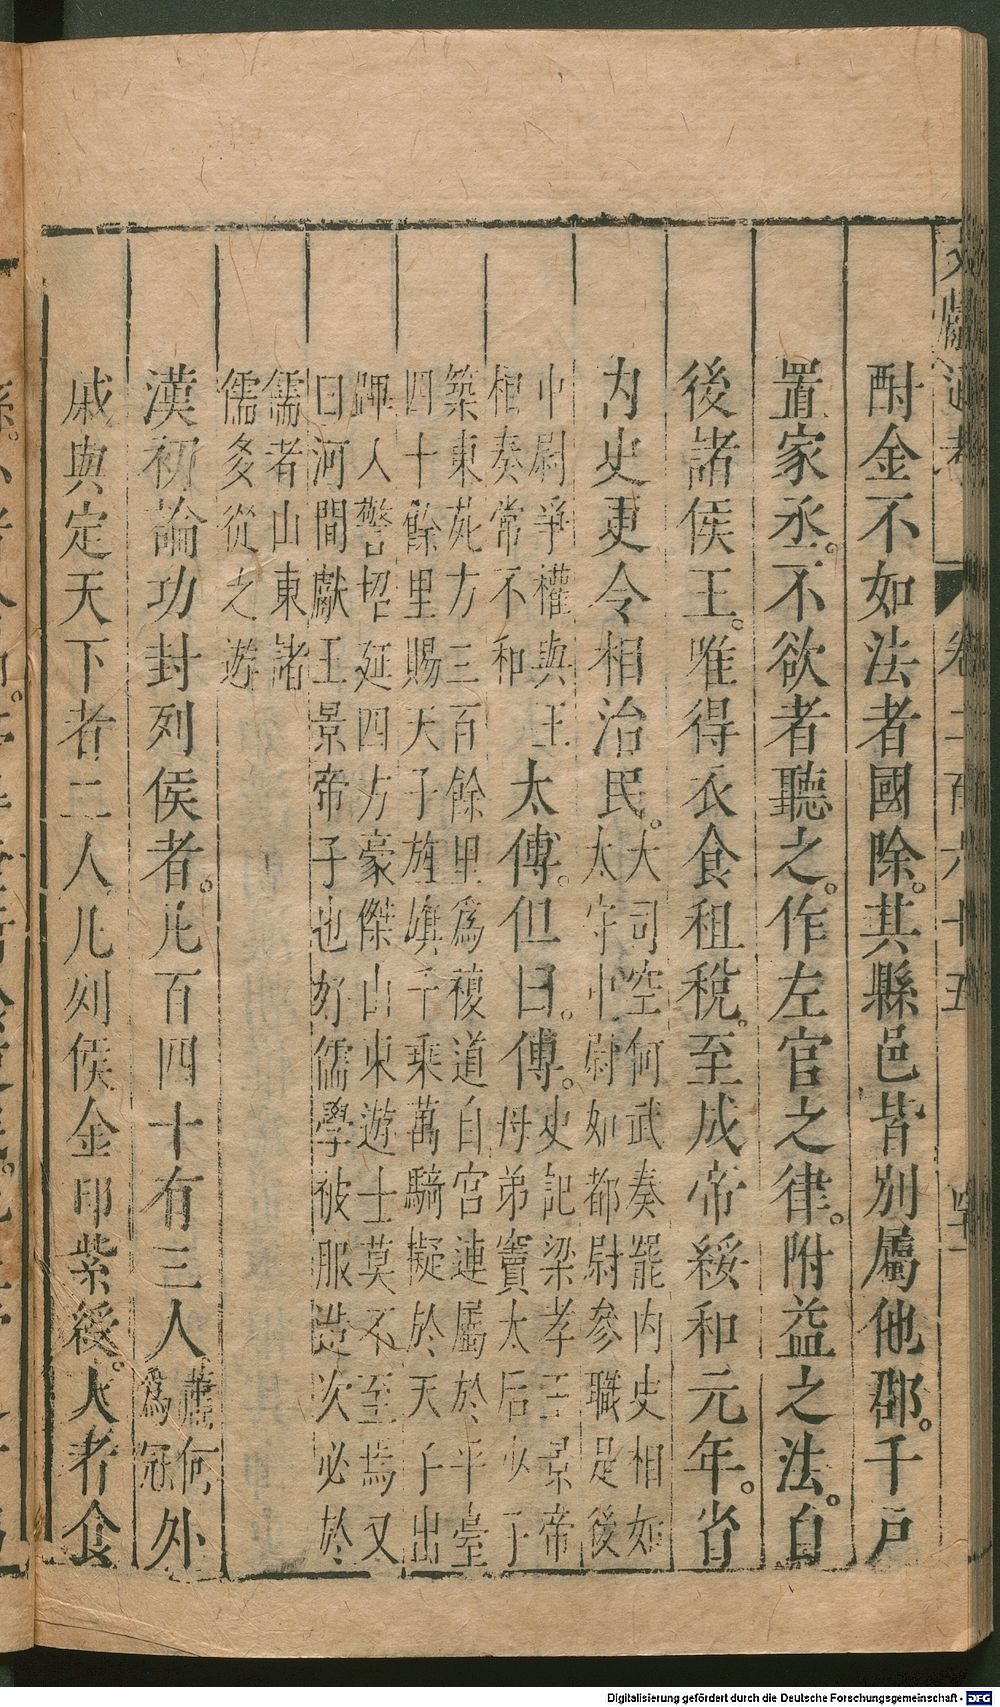 文獻通考 卷二百六十五
酎金不如法者國除。其縣邑皆別屬他郡。千戸
置家丞。不欲者聽之。作左官之律。附益之法。自
後諸侯王。唯得衣食租稅。至成帝綏和元年。省
內史更令相治民。大司空何武奏罷內史相如
太守中尉如都尉參職是後
中尉爭權與王
相奏常不和
太傅。但曰。傅。史記梁孝王景帝
母弟竇太后少子
築東苑方三百餘里爲複道自宮連屬於平臺
四十餘里賜天子旌旗千乘萬騎擬於天子出
蹕入警招延四方豪傑山東遊士莫不至焉又
曰河間獻王景帝子也好儒學被服造次必於
儒者山東諸
儒多從之遊
漢初論功封列侯者。凡百四十有三人蕭何
爲冠
外
戚與定天下者二人。凡列侯金印紫綬。大者食
Digitalisierung gefördert durch die Deutsche Forschungsgemeinschaft - DFG